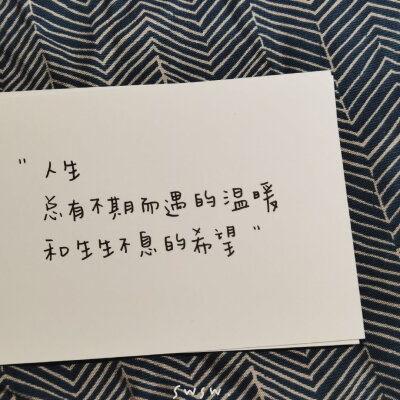 "人生
总有不期而遇的温暖
和生生不息的希望"
swsw.